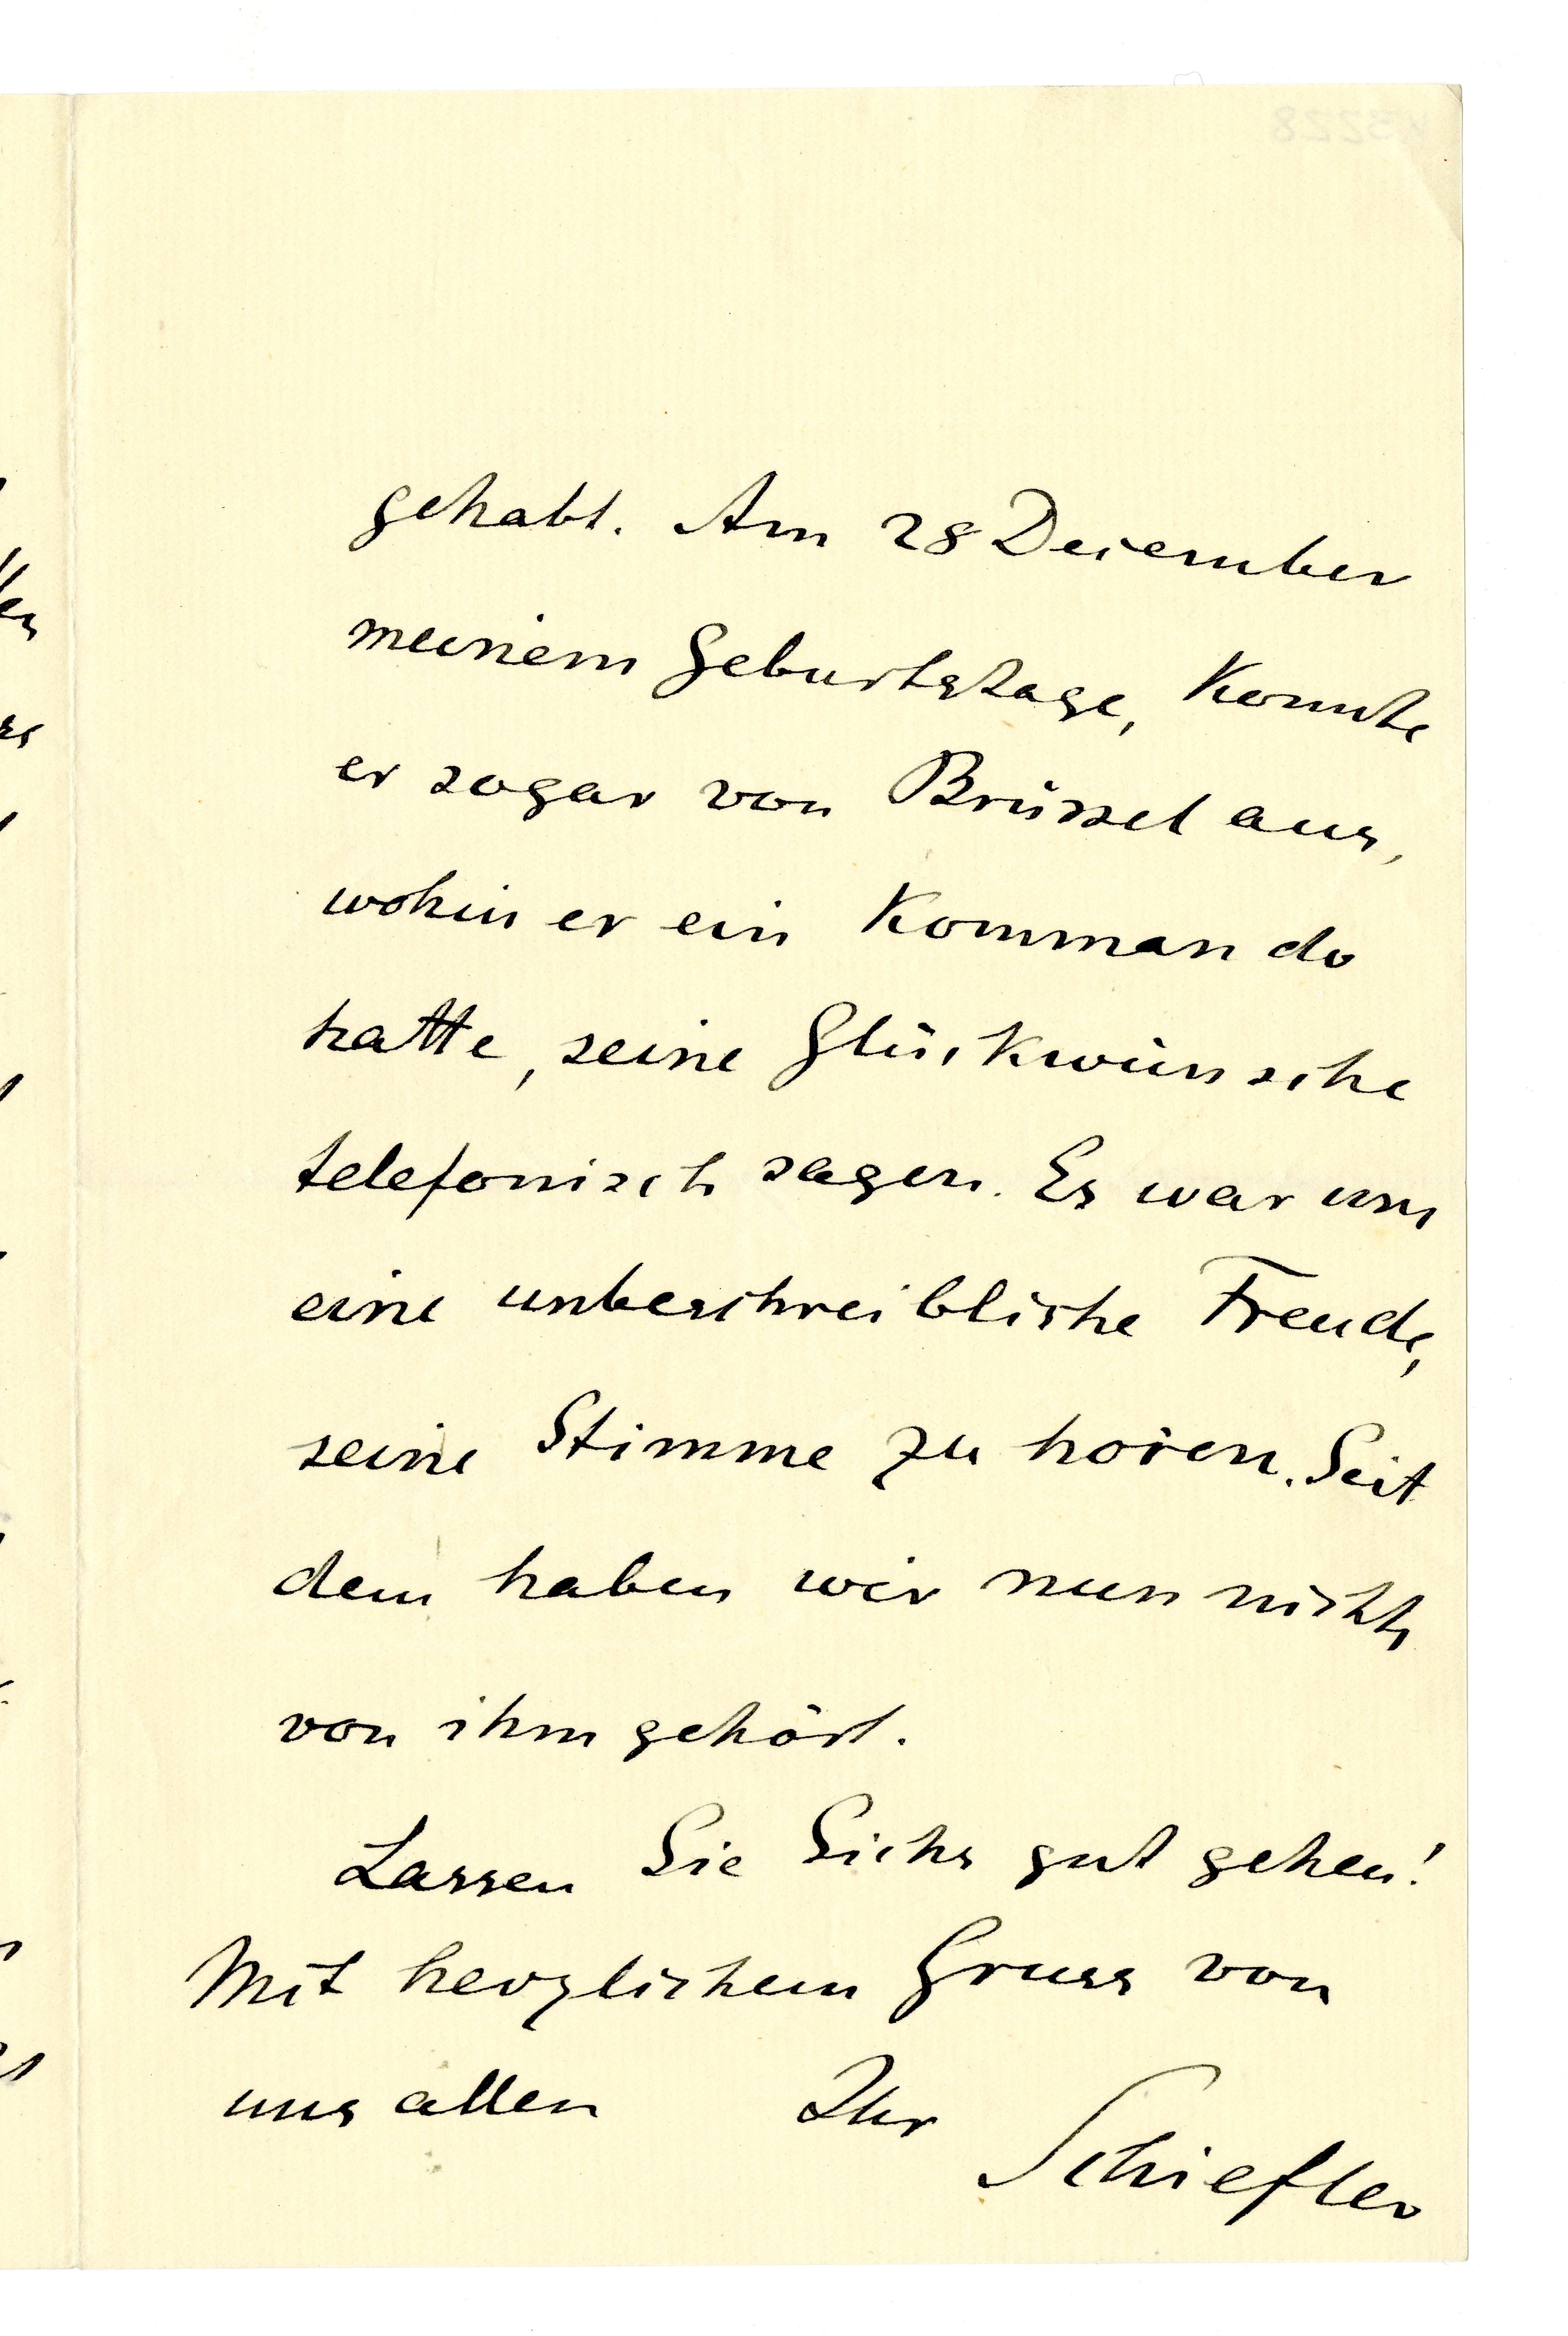 gehabt. Am 28 December
meinem Geburtstage, konnte
er sogar von Brüssel aus,
wohin er ein Kommando
hatte, seine Glückwünsche
telefonisch sagen. Es war uns
eine unbeschreibliche Freude,
seine Stimme zu hören. Seit
dem haben wir nun nichts
von ihm gehört.
Lassen Sie Sichs gut gehen!
Mit herzlichem Gruss von
uns allen Ihr
Schiefler